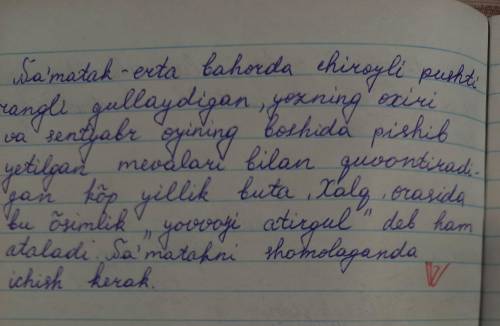 Na'matak - erta bahorda chiroyli pushti
rangli gullaydigan, yozning oxiri
va sentyabr oyining boshida pishib
yetilgan mevalari bilan quvontiradi-
gan kõp yillik buta. Xalq orasida
bu õsimlik „yovvoyi atirgul" deb ham
ataladi. Na'matakni shamolaganda
ichish kerak.